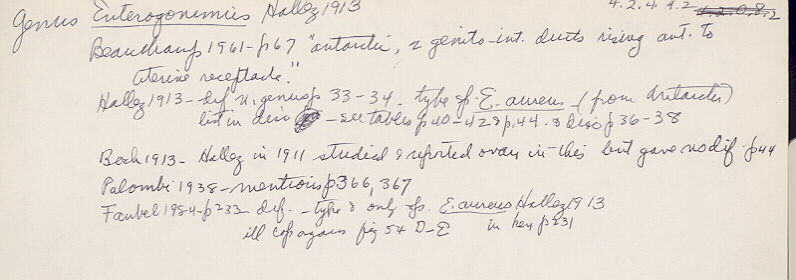 Genus Enterogonimus Hallez 1913 4.2.4.4.2 4.2.0.8.2
Beauchamp 1961-p67 "antarctic, 2 genito-int. ducts rising ant. to
uterine receptacle."
Hallez 1913 - def n. genus p 33-34. type sp. E. aureus - (from Antarctic)
list in disc - see tables p40-42 & p.44. & disc p 36-38
Bock 1913 - Hallez in 1911 studied & reported ovary in this but gave no dif. p44
Palombi 1938 - mentions p366, 367
Faubel 1984-p233 - def. - type & only sp. E. aureus Hallez 1913
ill cop again fig 54 D-E in key p231